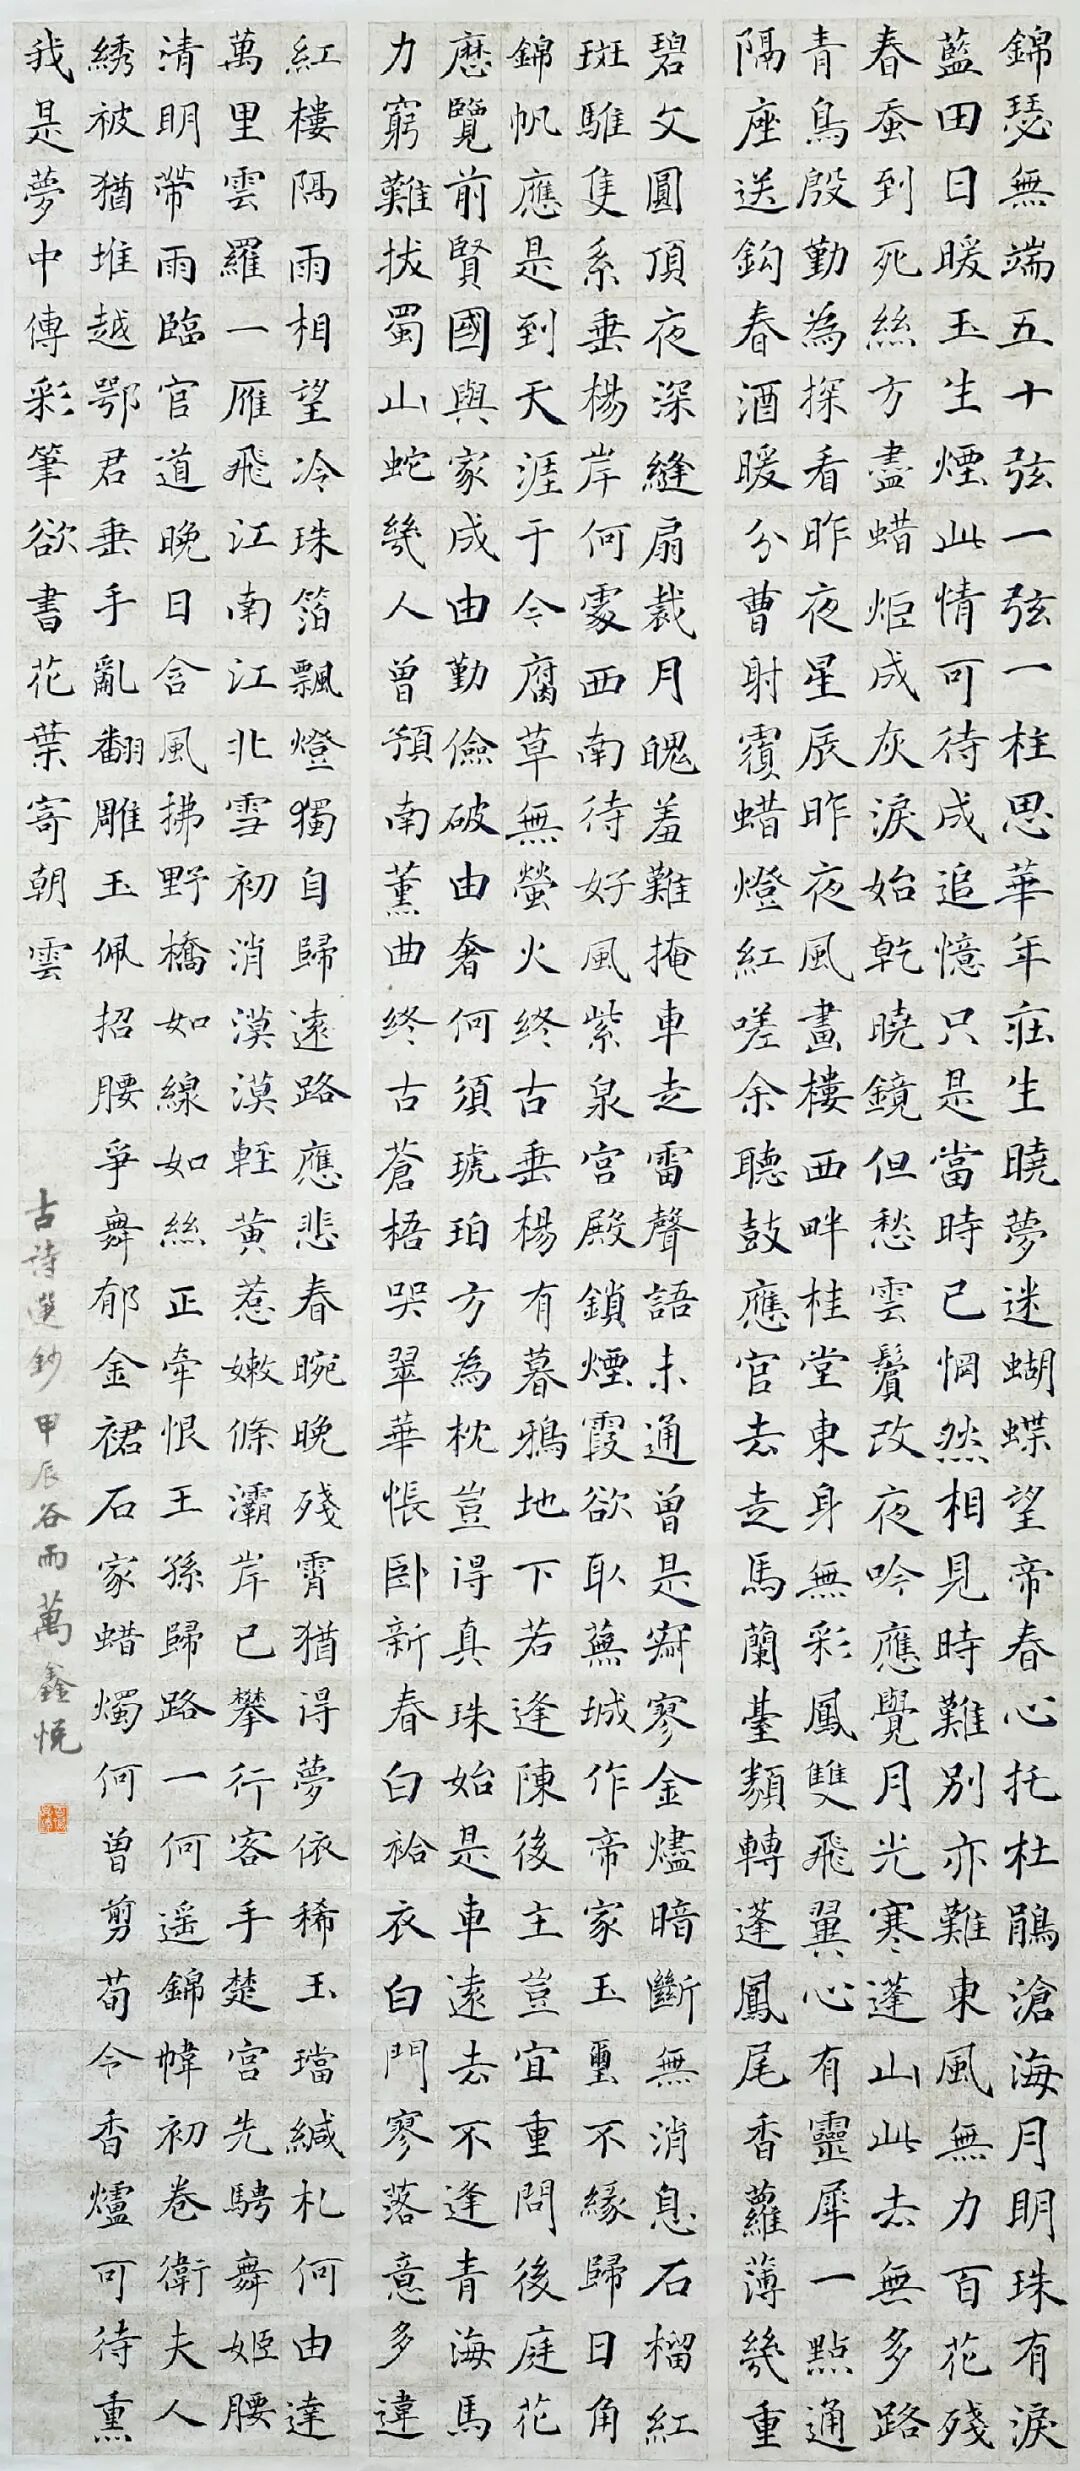 錦瑟無端五十弦一弦一柱思華年莊生曉夢迷蝴蝶望帝春心托杜鵑滄海月明珠有淚
藍田日暖玉生煙此情可待成追憶只是當時已惘然相見時難別亦難東風無力百花殘
春蚕到死絲方盡蜡炬成灰淚始乾曉鏡但愁雲鬢改夜吟應覺月光寒蓬山此去無多路
青鳥殷勤為探看昨夜星辰昨夜風畫樓西畔桂堂東身無彩鳳雙飛翼心有靈犀一點通
隔座送鈎春酒暖分曹射覆蜡燈紅嗟余聽鼓應官去走馬蘭臺類轉蓬鳳尾香蘿薄幾重
碧文圓頂夜深縫扇裁月魄羞難掩車走雷聲語未通曾是寂寥金燼暗斷無消息石榴紅
斑騅隻系垂楊岸何處西南待好風紫泉宮殿鎖煙霞欲取蕪城作帝家玉璽不緣歸日角
錦帆應是到天涯于今腐草無螢火終古垂楊有暮鴉地下若逢陳後主豈宜重問後庭花
歷覽前賢國與家成由勤儉破由奢何須琥珀方為枕豈得真珠始是車遠去不逢青海馬
力窮難拔蜀山蛇幾人曾預南薰曲終古蒼梧哭翠華悵臥新春白袷衣白門寥落意多違
紅樓隔雨相望冷珠箔飄燈獨自歸遠路應悲春晼晚殘霄猶得夢依稀玉璫緘札何由達
萬里雲羅一雁飛江南江北雪初消漠漠輕黃惹嫩條灞岸已攀行客手楚宮先騁舞姬腰
清明帶雨臨官道晚日含風拂野橋如線如絲正牽恨王孫歸路一何遥錦幃初卷衛夫人
綉被猶堆越鄂君垂手亂翻雕玉佩招腰爭舞郁金裙石家蜡燭何曾剪荀令香爐可待熏
我是夢中傳彩筆欲書花葉寄朝雲
古詩選鈔甲辰谷雨萬鑫悅